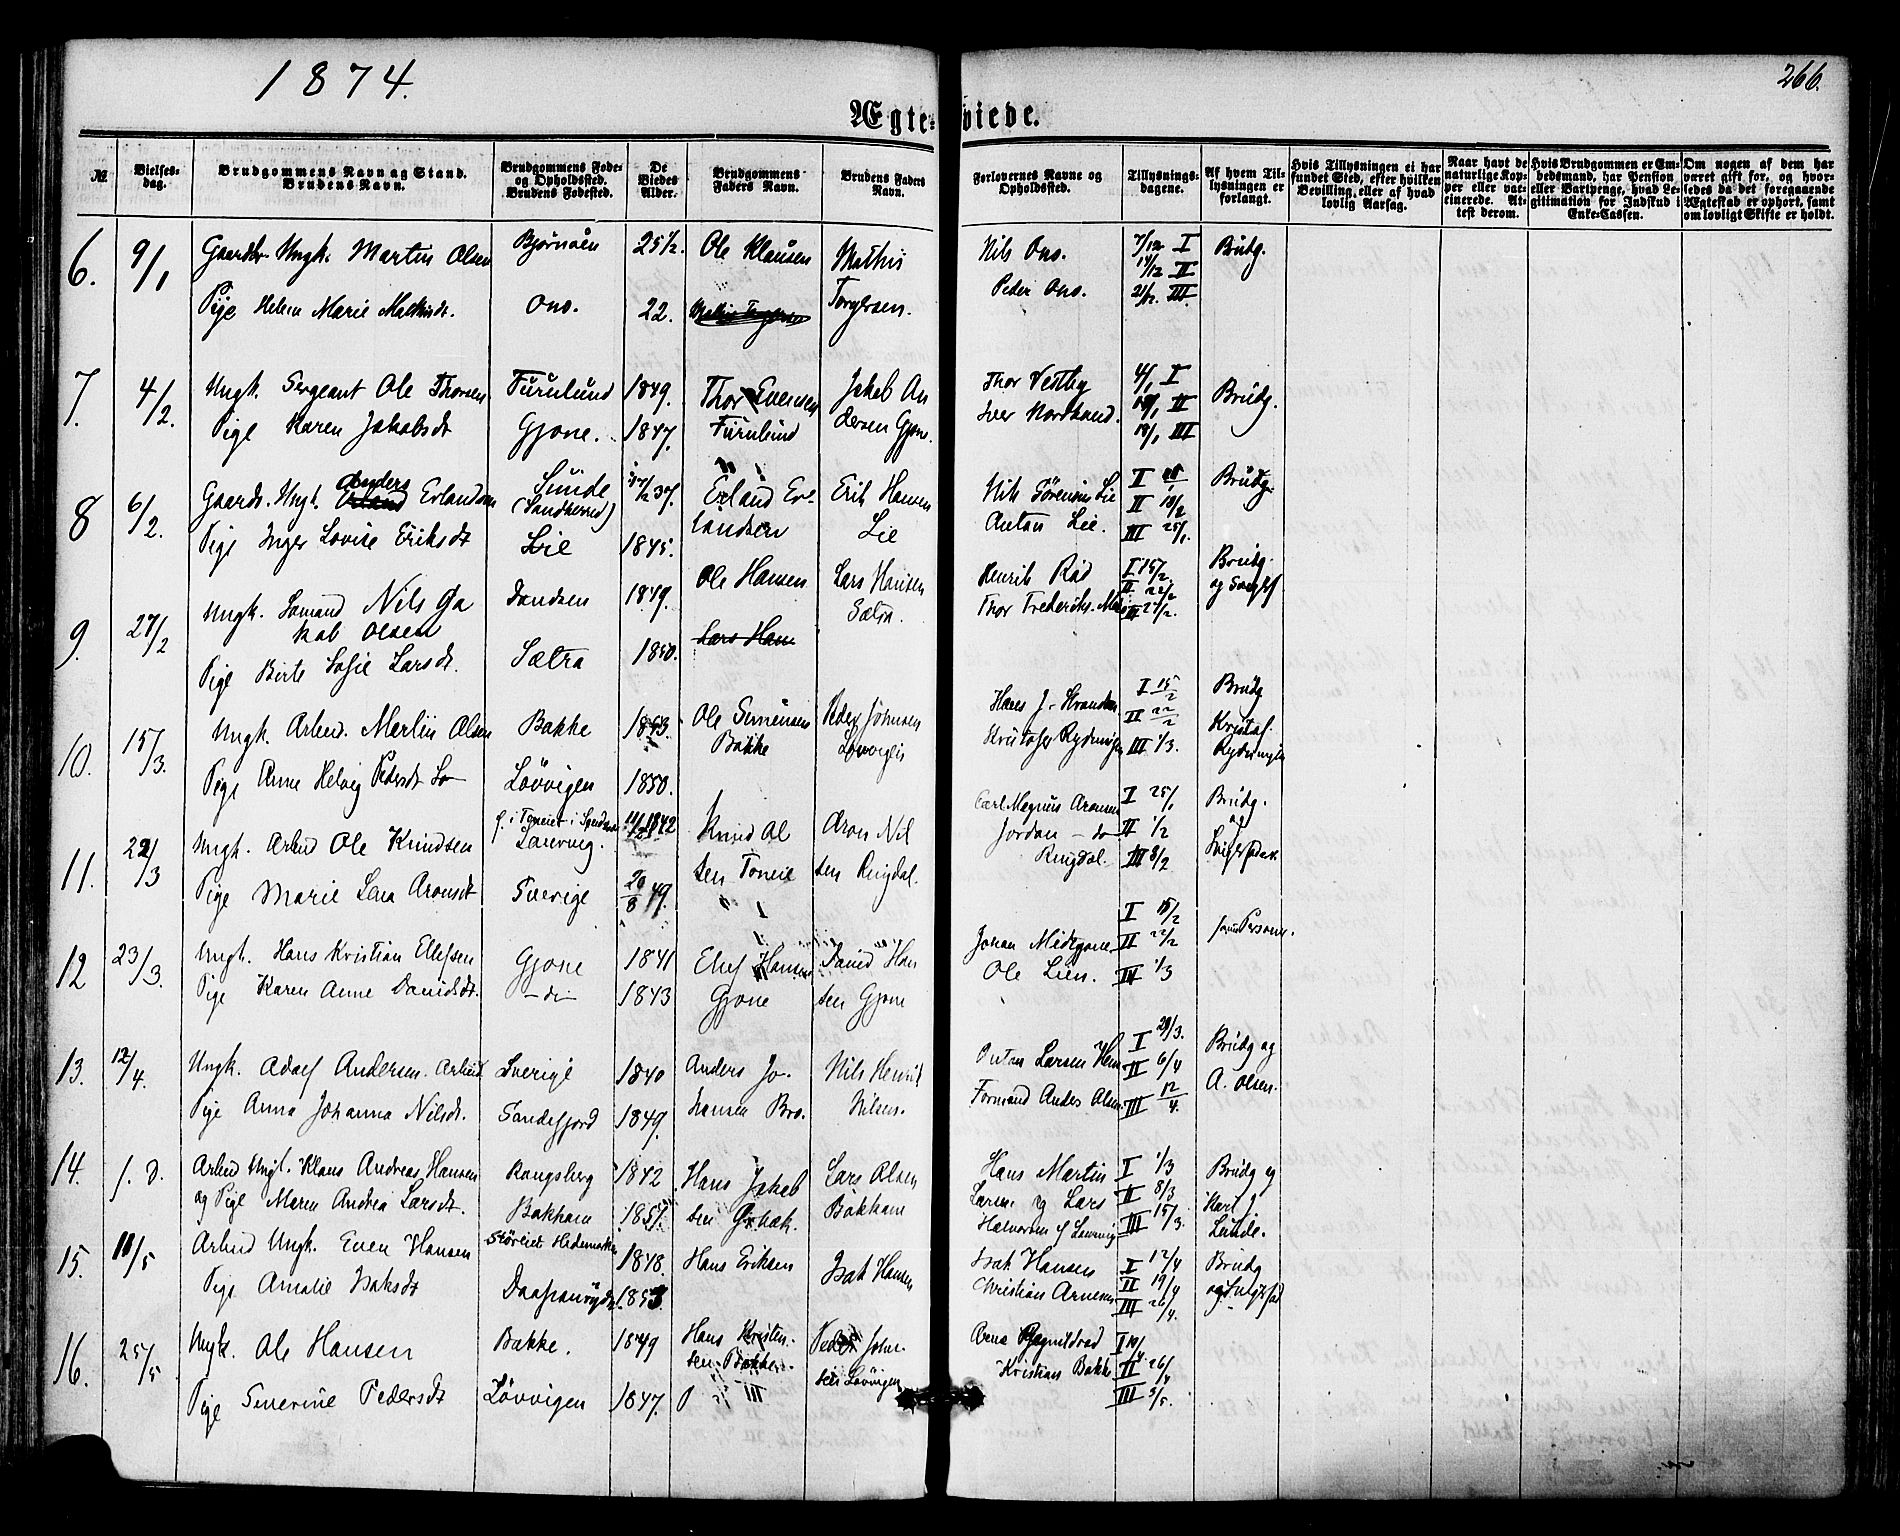 1874.
266.
Ægte-viede.
№
Vielses-dag.
Brudgommens Navn og Stand. Brudens Navn.
Brudgommens Føde- og Opholdssted. Brudens Fødested.
De Viedes Alder.
Brudgommens Faders Navn.
Brudens Faders Navn.
Forlovernes Navne og Opholdssted.
Tillysnings-dagene.
Af hvem Tillysningen er forlangt.
Hvis Tillysningen ei har fundet Sted, efter hvilken Bevilling, eller af hvad lovlig Aarsag.
Naar havt de naturlige Kopper eller vaccinerede. Attest derom.
Hvis Brudgommen er Embedsmand, har Pension eller Vartpenge, hvad Legitimation for Indskud i Enke-Cassen.
Om nogen af dem har været gift før, og hvorledes da det foregaaende Ægteskab er ophørt, samt om lovligt Skifte er holdt.
6. 9/1 Ungk. Martin Olsen Bjørnøen 25 1/2. Ole Klausen Mathis Nils Ono. 7/12 I Brudg.
14/12 II
Pige Helene Marie Mathisdt. Ono. 22. Torgersen. Peder Ono. 21/12 III
7. 4/2. Ungk. Sergeant Ole Thorsen Furulund 1849. Thor Evensen Jakob An Thor Vestby 4/1 I Brudg.
Pige Karen Jakobsdt Gjone. 1847. Furulund dersen Gjone. Iver Nordhand. II
18/1 III
8 6/2. Gaardb. Ungk. Anders Erlandsen Sunde (Sandherred) 37. Erland Er- Erik Hansen Nils Sørensen Lie I Brudg.
Pige Inger Lovise Eriksdt Lie 1845. landsen Lie Anton Lie. II III 25/1
9. 27/2 Ungk. Sømand Nils Ja Dondsen 1849. Ole Hansen Lars Hansen Henrik Råd I 15/2. Brudg.
kob Olsen Sætra. Thor Frederiks. II 22/2
Pige Birte Sofie Larsdt. Sætra 1850. Lars Han
10. 15/3. Ungk. Arbeid. Martin Olsen Bakke 1853. Ole Simensen Peder Johnsen I 15/2 Brudg
Bakke Løvvigen II 22/2 Kristof.
Pige Anne Helvig Pedersdt Løvvigen 1850. III 1/3.
11. 22/3 Ungk. Arbeid Ole Knudsen Laurvig. 1842 Knud Ol Aron Nil Carl Magnus Aronsen I 25/1 Brudg.
Jordan - do II 1/2 og
Pige Marie Lena Aronsdt Sverige 20/8 49. sen Toneie sen Ringdal. Ringdal. III 8/2
12 23/3. Ungk. Hans Kristian Ellefsen Gjone 1841 Elef Hansen David Han Johan Midtgjone I 15/2 samme Personer.
II 22/2
Pige Karen Anne Davidsdt. - do - 1843 Gjone sen Gjone Ole Lien. III 1/3
13. 12/4. Ungk. Adolf Andersen. Arbeid Sverige 1840 Anders Jo- Nils Henrik Anton Larsen I 29/3. Brudg og
II 6/4
Pige Anna Johanna Nilsdt. Sandefjord 1849. hansen Bro. Nilsen. Formand Anders Olsen III 12/4. A. Olsen.
14. s. D. Arbeid Ungk. Klaus Andreas Hansen Kongsberg 1842 Hans Jakob Lars Olsen Hans Martin I 1/3 Brudg og
og Pige Maren Andrea Larsdt. Bakham 1851. sen Bakham Larsen og Lars II 8/3 Karl J
Halvorsen af Laurvig III 15/3. Lunde.
15. 11/5 Arbeid Ungk. Even Hansen Hedemarken 1848. Hans Eriksen Isak Hansen Isak Hansen I 12/4 Brudg
Pige Amalie Isaksdt 1853 Christian Arnesen II 19/4
III 26/4.
16. 25/5 Ungk. Ole Hansen Bakke. 1849 Hans Kristen- Peder John- Arne I 19/4
sen Bakke. sen Løvvigen Kristian Bakke II 26/4
Pige Severine Pedersdt Løvvigen 1847. III 3/5.